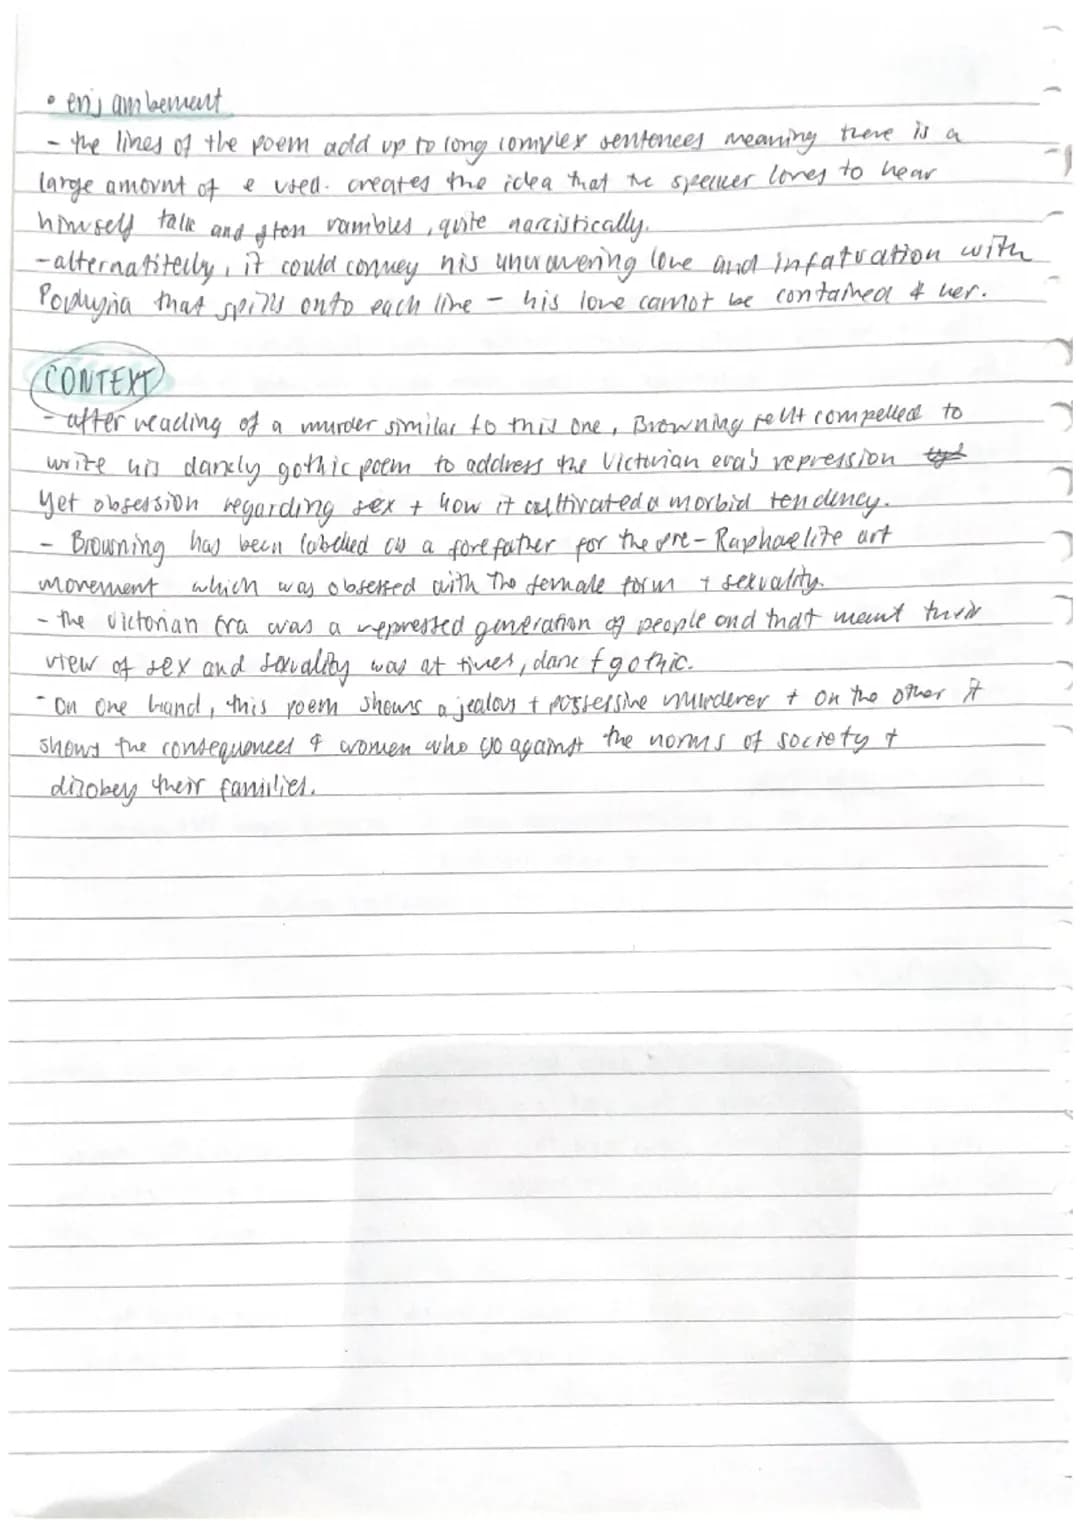 • enjambement
- the lines of the poem add up to long complex sentences meaning there is a
large amount of e used. creates the idea that the speaker loves to hear
himself talk and often rambles, quite narcistically.
- alternatitelly, it could convey his unwavering love and infatuation with
Porphyria that spills onto each line - his love cannot be contained & her.
CONTEXT
- after reading of a murder similar to this one, Browning felt compelled to
write his darkly gothic poem to address the Victorian era's repression
yet obsession regarding sex + how it cultivated a morbid tendency.
- Browning has been labelled as a forefather for the pre-Raphaelite art
movement which was obsessed with the female form + sexuality.
- the Victorian Era was a repressed generation of people and that meant their
view of sex and sexuality was at times, dark + gothic.
- On one hand, this poem shows a jealous + possessive murderer + on the other it
shows the consequences of women who go against the norms of society +
disobey their families.